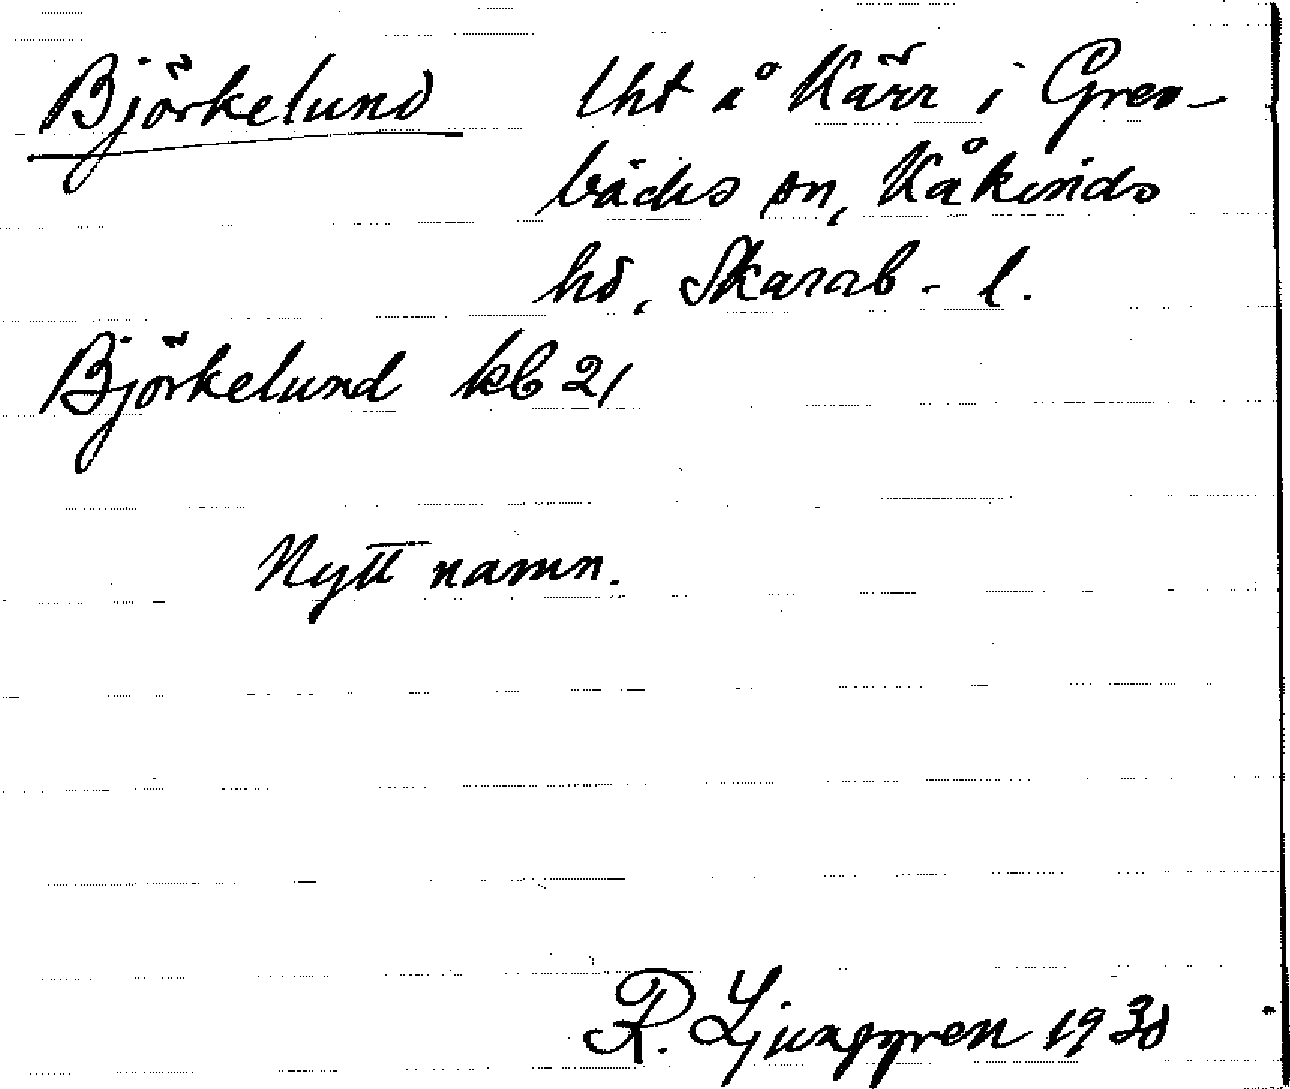 Björkelund lht å Kärr i Gren-
bäcks sn, Kåkinds
hd, Skarab. l.
Björkelund kb 21
Nytt namn.
R. Ljunggren 1930